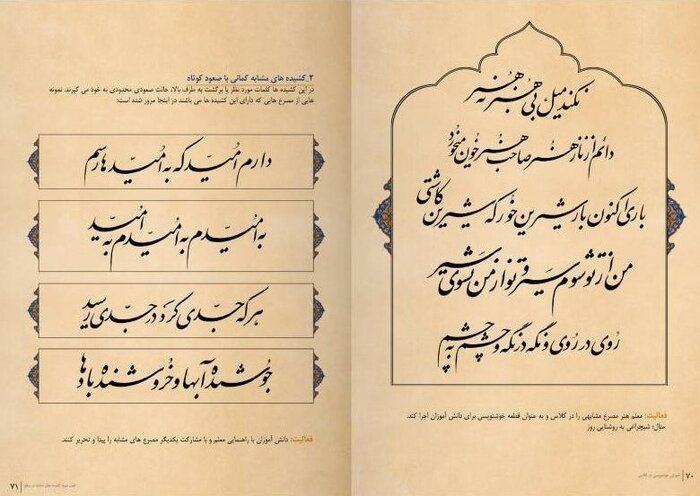 نکند میل بی هنر به هنر
دائم از ناز هنر صاحب هنر خون میخورد
باری اکنون بار شیرین خور که شیرین کاشتی
من از تو شوم سیر و تو از من نشوی سیر
رُوی در رُوی و نگه در نگه و چشم به چشم
فعالیت: معلم هنر مصرع مشابهی را در کلاس و به عنوان قطعه خوشنویسی برای دانش آموزان اجرا کند.
مثال: شبچراغی به روشنایی روز
۷۰
۲_کشیده های مشابه کمانی با صعود کوتاه
در این کشیده ها کلمات مورد نظر با برگشت به طرف بالا، حالت صعودی محدودی به خود می گیرند. نمونه
هایی از مصرع هایی که دارای این کشیده ها می باشند در اینجا مرور شده است:
دارم اُمّید که به اُمّیدها رسم
به اُمّیدم به اُمّیدم به اُمّید
هر که جدّی کرد در جدّی رسید
جوشنده آبها و خروشنده بادها
فعالیت: دانش آموزان با راهنمایی معلم و با مشارکت یکدیگر مصرع های مشابه را پیدا و تحریر کنند.
۷۱